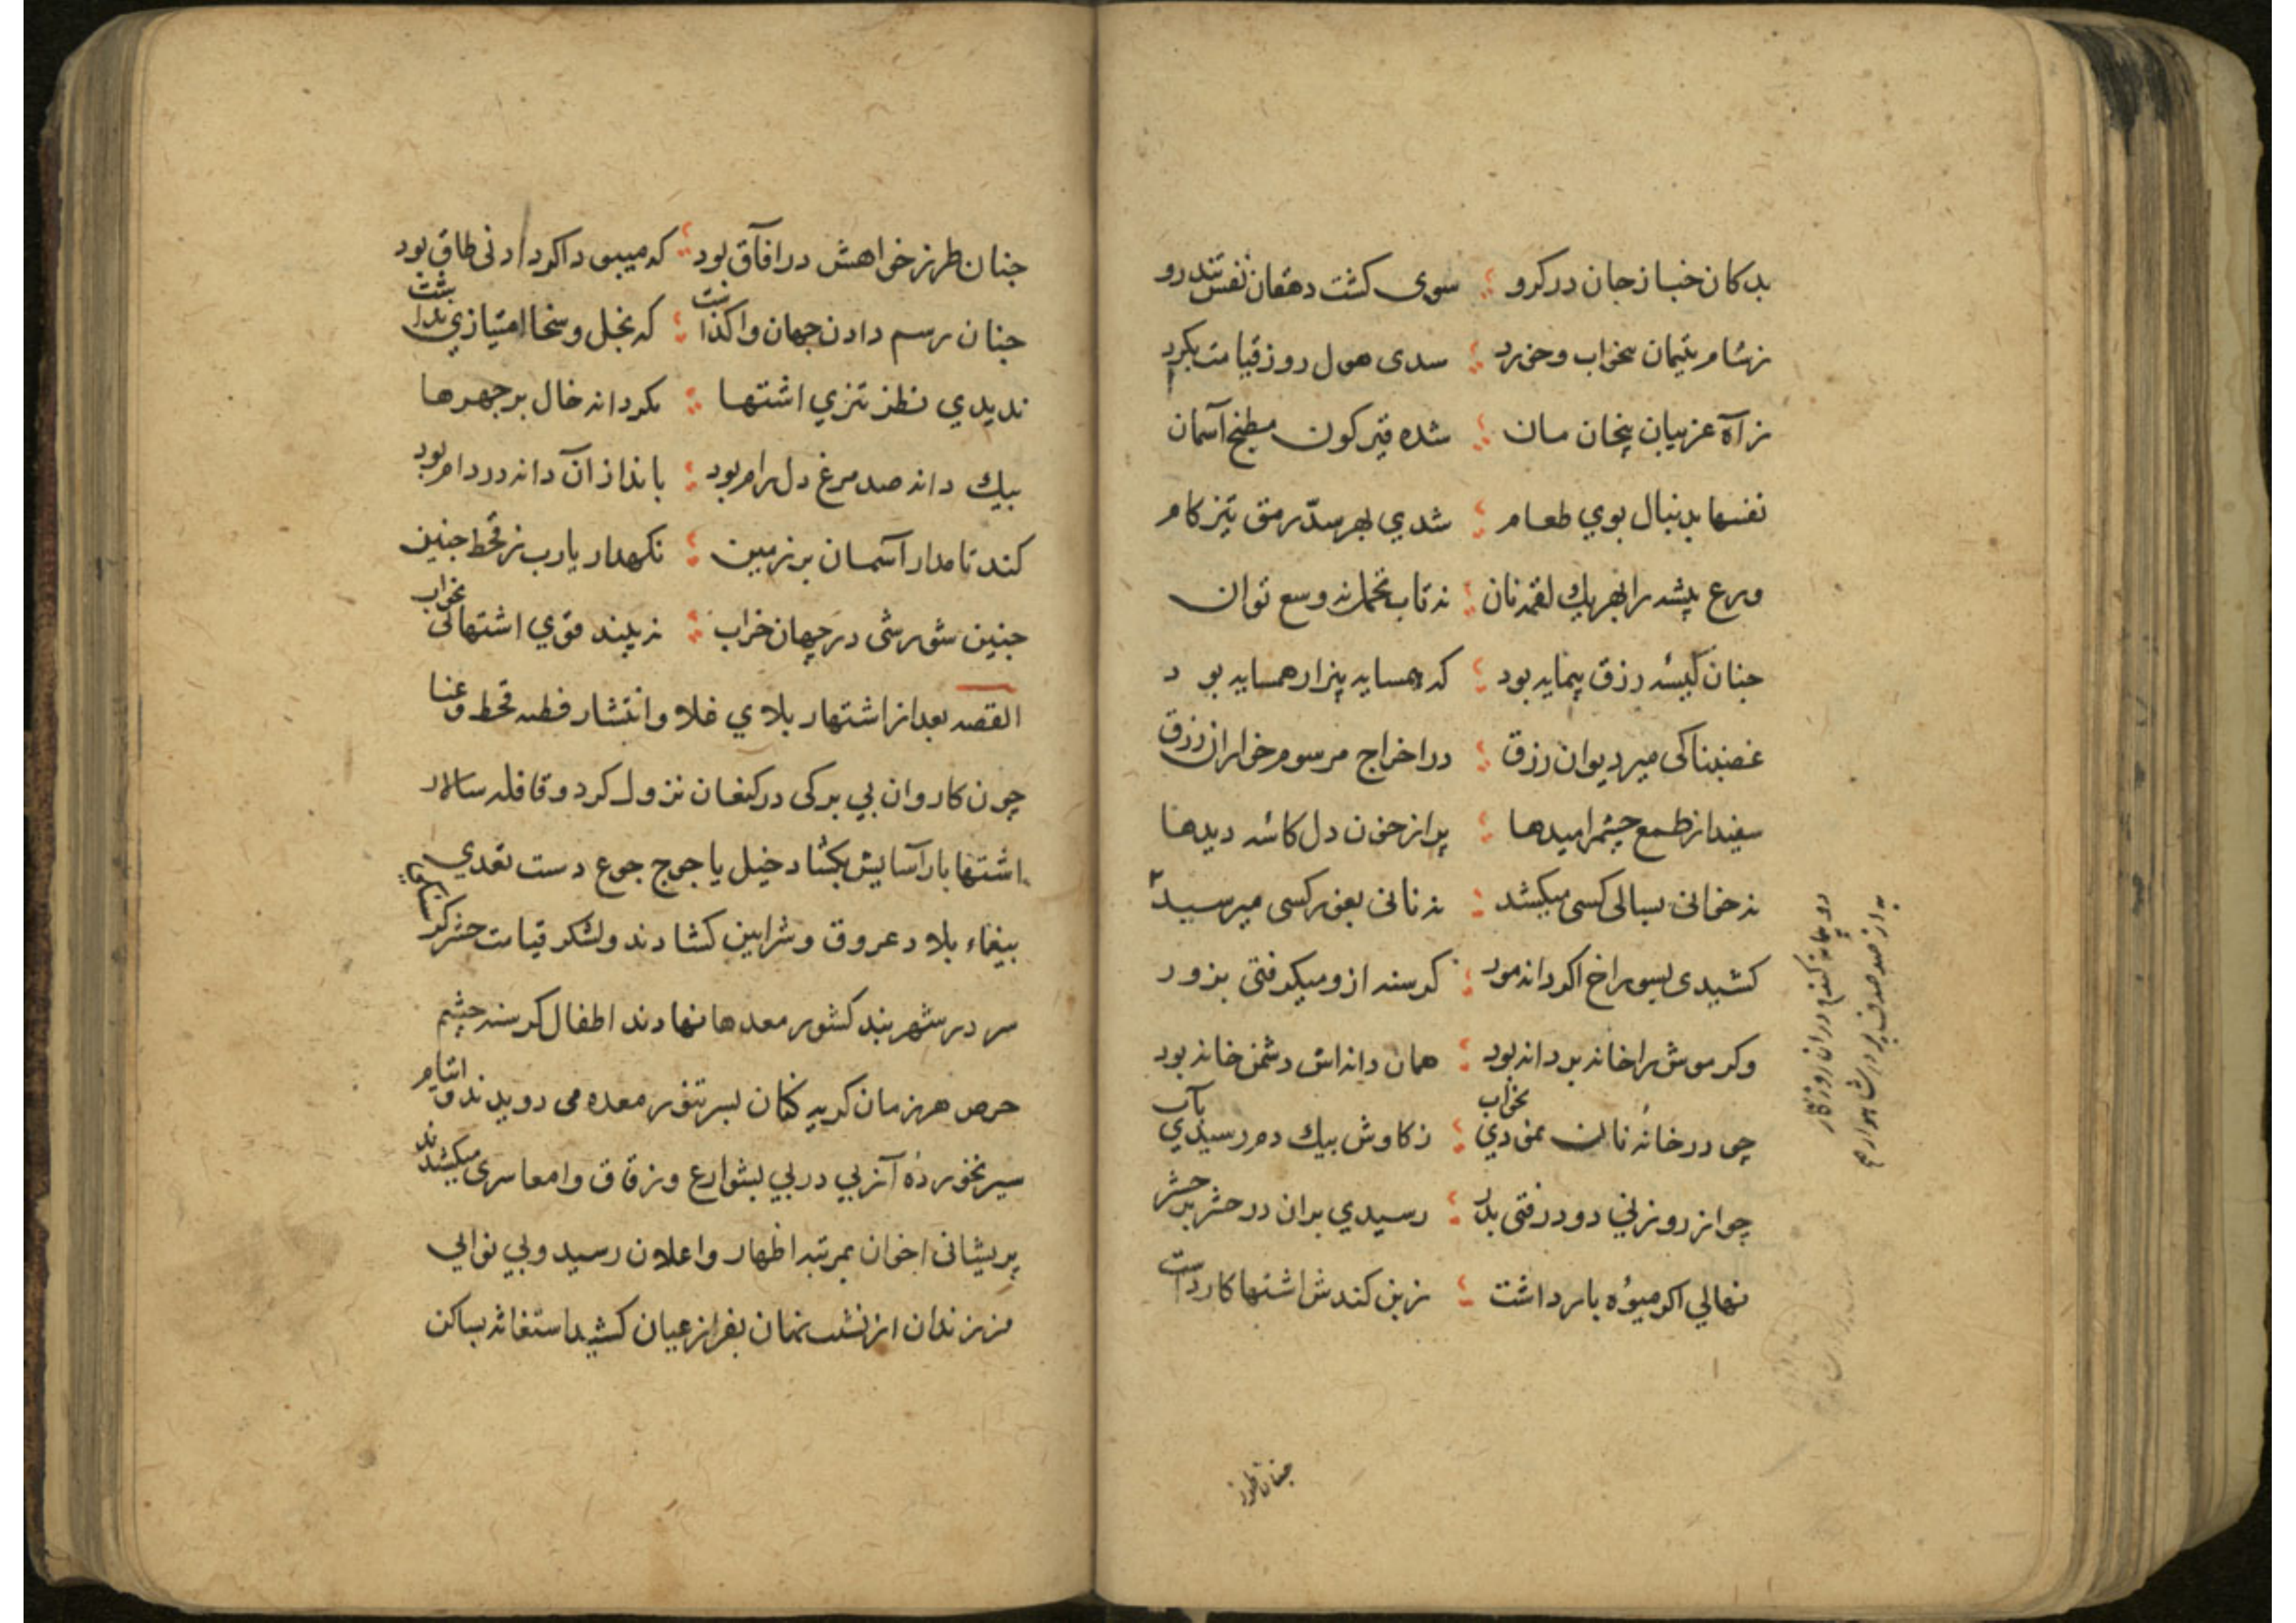 بدکان خباز جان در کرو ؛ سوی کشت دهقان نفس تند رو
ز شام یتیمان بخواب و خورد ؛ سدی هول روز قیامت بکرد
ز آه غریبان بیخان مان ؛ شده قیر کون مطبخ آسمان
نفسها بدنبال بوي طعام ؛ شدي بهر سدّ رمق تیز کام
ورع پیشه را بهر یك لقمه نان ؛ نه تاب تحمل نه وسع توان
چنان کیسه رزق بیمایه بود ؛ که همسایه بیزار همسایه بود
غضبناکی میر دیوان رزق ؛ در اخراج مرسوم خواران رزق
سفید از طمع چشم امیدها ؛ پر از خون دل کاسه دیدها
نه خوانی بسالی کسی میکشد ؛ نه نانی بغور کسی میرسید
کشیدی بسوراخ اکر دانه مور ؛ کرسنه ازو میکرفتی بزور
وکر موش را خانه پر دانه بود ؛ همان دانه‌اش دشمن خانه بود
چو در خانهٔ نان نمودي بخواب ؛ ز کاوش بیك دم رسیدي بآب
چو از روزني دود رفتی بدر ؛ رسیدي بران در حشر بر حشر
نهالي اکر میؤه بار داشت ؛ ز بن کندش اشتها کار داشت
دو جانه کندم دران روزکار
به از صد صدف پر در شاهوار م
چنان طرز
جنان طرز خواهش در افاق بود ؛ که میبود اکر دادنی طاق بود
جنان رسم دادن جهان واکذاشت ؛ که بخل و سخا امتیازي نداشت
ندیدي نظز تیزي اشتها ؛ بکر دانه خال بر چهرها
بیك دانه صد مرغ دل رام بود ؛ بانداز آن دانه در دام بود
کند تا مدار آسمان بر زمین ؛ نکهدار یارب ز قحط جنین
جنین شورشی در جهان خراب ؛ نه بیند قوي اشتهائی بخواب
القصه بعد از اشتهار بلاي غلا و انتشار فطنه قحط و عنا
چون کاروان بي برکی در کنعان نزول کرد و قافله سالار
اشتها بار آسایش بکشاد خیل یاجوج جوع دست تعدي
بیغماء بلاد عروق و شرایین کشادند و لشکر قیامت حشر کرسنکی
سر در شهر بند کشور معدها نهادند اطفال کرسنه چشم
حرص هر زمان کریه کنان بسر تنور معده می دویدند و ایتام
سیر نخوردهٔ آز بي در پي بشوارع و زقاق و امعا سری میکشیدند
پریشانی اخوان بمرتبه اظهار و اعلان رسید و بي نوائي
فرزندان از نشیب نهان بفراز عیان کشید استغاثه ساکن